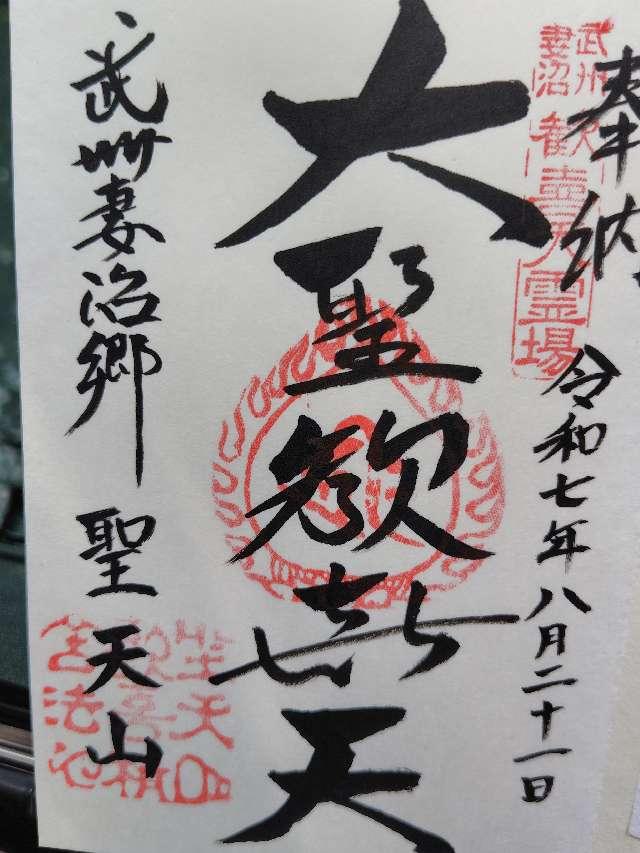 奉納
武州
妻沼
歓喜天霊場
令和七年八月二十一日
大聖歓喜天
武州妻沼郷 聖天山